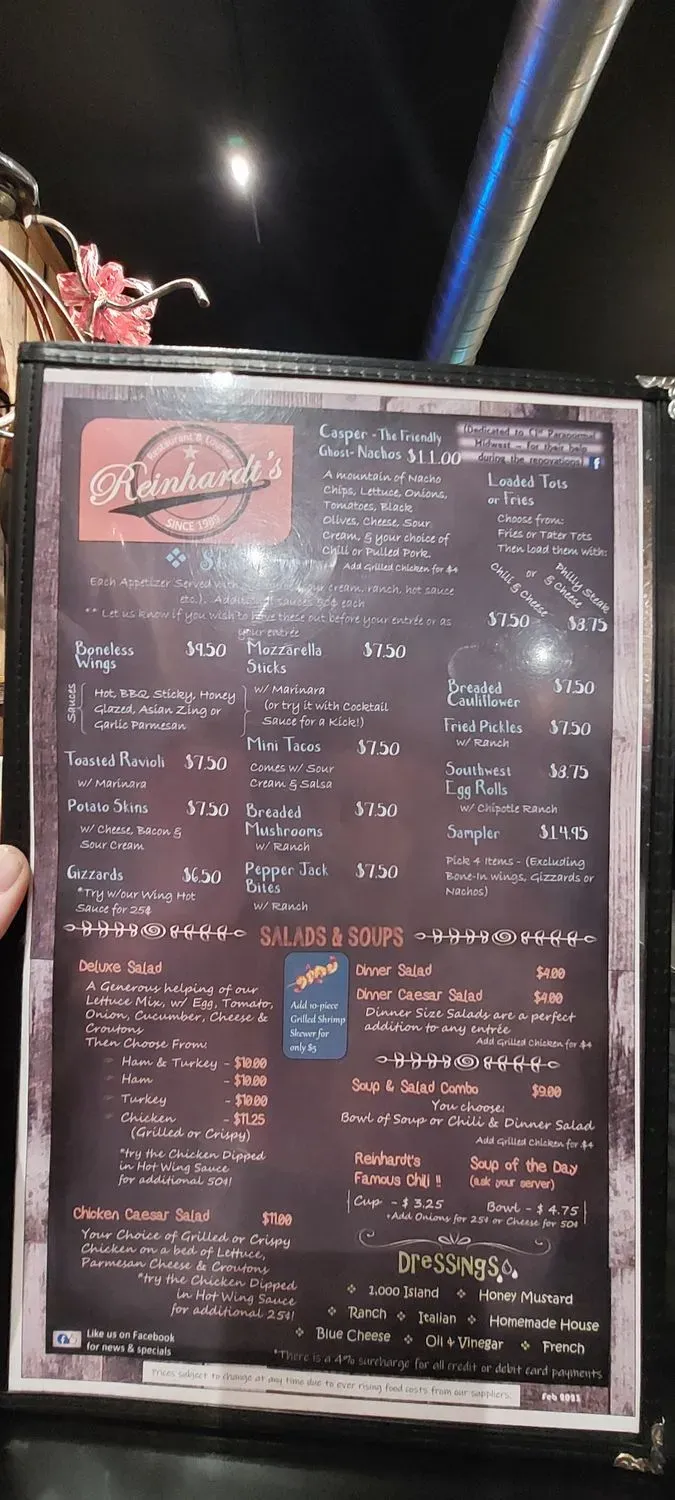 Restaurant & Lounge
Reinhardt's
SINCE 1989
Casper - The Friendly
Ghost- Nachos $11.00
(Dedicated to Paranormal
Midwest - for their help
during the renovations)
A mountain of Nacho
Chips, Lettuce, Onions,
Tomatoes, Black
Olives, Cheese, Sour
Cream, & your choice of
Chili or Pulled Pork.
Add Grilled Chicken for $4
Loaded Tots
or Fries
Choose from:
Fries or Tater Tots
Then load them with:
Chili & Cheese or Philly Steak & Cheese
$7.50 $8.75
Each Appetizer Served with cream, ranch, hot sauce
etc.). Additional sauces 50¢ each
** Let us know if you wish to have these out before your entrée or as
your entrée
Boneless
Wings $9.50
Sauces
Hot, BBQ, Sticky, Honey
Glazed, Asian Zing or
Garlic Parmesan
Toasted Ravioli $7.50
w/ Marinara
Potato Skins $7.50
w/ Cheese, Bacon &
Sour Cream
Gizzards $6.50
*Try w/our Wing Hot
Sauce for 25¢
Mozzarella
Sticks $7.50
w/ Marinara
(or try it with Cocktail
Sauce for a Kick!)
Mini Tacos $7.50
Comes w/ Sour
Cream & Salsa
Breaded
Mushrooms $7.50
w/ Ranch
Pepper Jack
Bites $7.50
w/ Ranch
Breaded
Cauliflower $7.50
Fried Pickles $7.50
w/ Ranch
Southwest
Egg Rolls $8.75
w/ Chipotle Ranch
Sampler $14.95
Pick 4 Items - (Excluding
Bone-In wings, Gizzards or
Nachos)
SALADS & SOUPS
Deluxe Salad
A Generous helping of our
Lettuce Mix, w/ Egg, Tomato,
Onion, Cucumber, Cheese &
Croutons
Then Choose From:
Ham & Turkey - $10.00
Ham - $10.00
Turkey - $10.00
Chicken - $11.25
(Grilled or Crispy)
*try the Chicken Dipped
in Hot Wing Sauce
for additional 50¢!
Chicken Caesar Salad $11.00
Your Choice of Grilled or Crispy
Chicken on a bed of Lettuce,
Parmesan Cheese & Croutons
*try the Chicken Dipped
in Hot Wing Sauce
for additional 25¢!
Add 10-piece
Grilled Shrimp
Skewer for
only $5
Dinner Salad $4.00
Dinner Caesar Salad $4.00
Dinner Size Salads are a perfect
addition to any entrée
Add Grilled Chicken for $4
Soup & Salad Combo $9.00
You choose:
Bowl of Soup or Chili & Dinner Salad
Add Grilled Chicken for $4
Reinhardt's
Famous Chili !!
Soup of the Day
(ask your server)
Cup - $ 3.25 Bowl - $ 4.75
*Add Onions for 25¢ or Cheese for 50¢
Dressings
1,000 Island Honey Mustard
Ranch Italian Homemade House
Blue Cheese Oil & Vinegar French
Like us on Facebook
for news & specials
*There is a 4% surcharge for all credit or debit card payments
Prices subject to change at any time due to ever rising food costs from our suppliers.
Feb